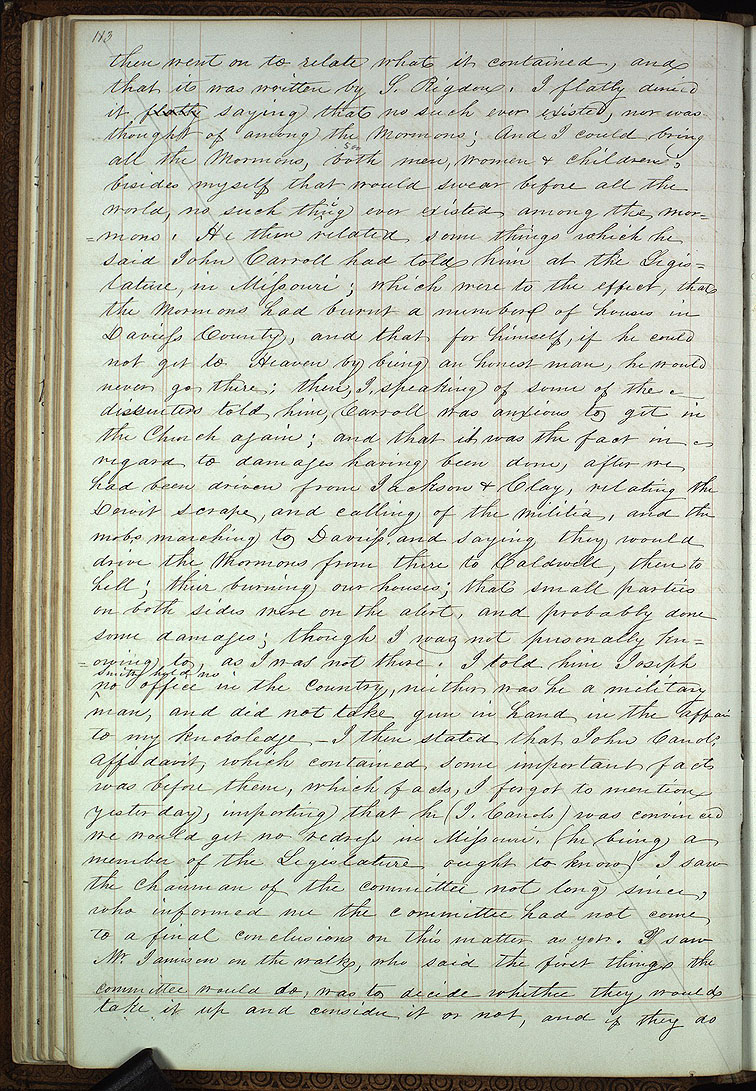 113
then went on to relate what it contained, and
that it was written by S. Rigdon. I flatly denied
it flatly saying that no such ever existed, nor was
thought of among the Mormons; And I could bring
all the Mormons, both men, women & children,
besides myself that would swear before all the
world, no such thing ever existed among the mor=
=mons. He then related some things which he
said John Carroll had told him at the Legis=
lature, in Missouri; which were to the effect, that
the Mormons had burnt a number of houses in
Daviess County, and that for himself, if he could
not get to Heaven by being an honest man, he would
never go there; then, I, speaking of some of the
dissenters told him, Carroll was anxious to get in
the Church again; and that it was the fact in
regard to damages having been done, after we
had been driven from Jackson & Clay, relating the
Dewit scrape, and calling of the militia, and the
mobs marching to Daviess, and saying they would
drive the Mormons from there to Caldwell, then to
hell; their burning our houses; that small parties
on both sides were on the alert, and probably done
some damages; though I was not personally kn=
=owing to, as I was not there. I told him Joseph
Smith held no
no office in the country, neither was he a military
man, and did not take gun in hand in the affair
to my knowledge – I then stated that John Carrols
Affidavit, which contained some important facts
was before them, which facts, I forgot to mention
yesterday, importing that he (J. Carrols) was convinced
we would get no redress in Missouri. (he being a
member of the Legislature ought to know) I saw
the chairman of the committee not long since,
who informed me the committee had not come
to a final conclusions on this matter as yet. I saw
Mr Jamison on the walk, who said the first things the
committee would do, was to decide whether they would
take it up and consider it or not, and if they do